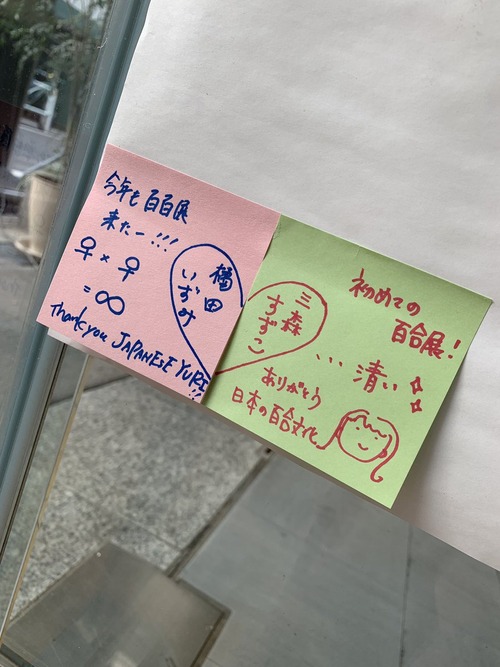 今年も百合展
来たー!!!
♀×♀
=∞
thank you JAPANESE YURI!!
橘田
いずみ
初めての
百合展!
三森
すずこ
...清い
ありがとう
日本の百合文化